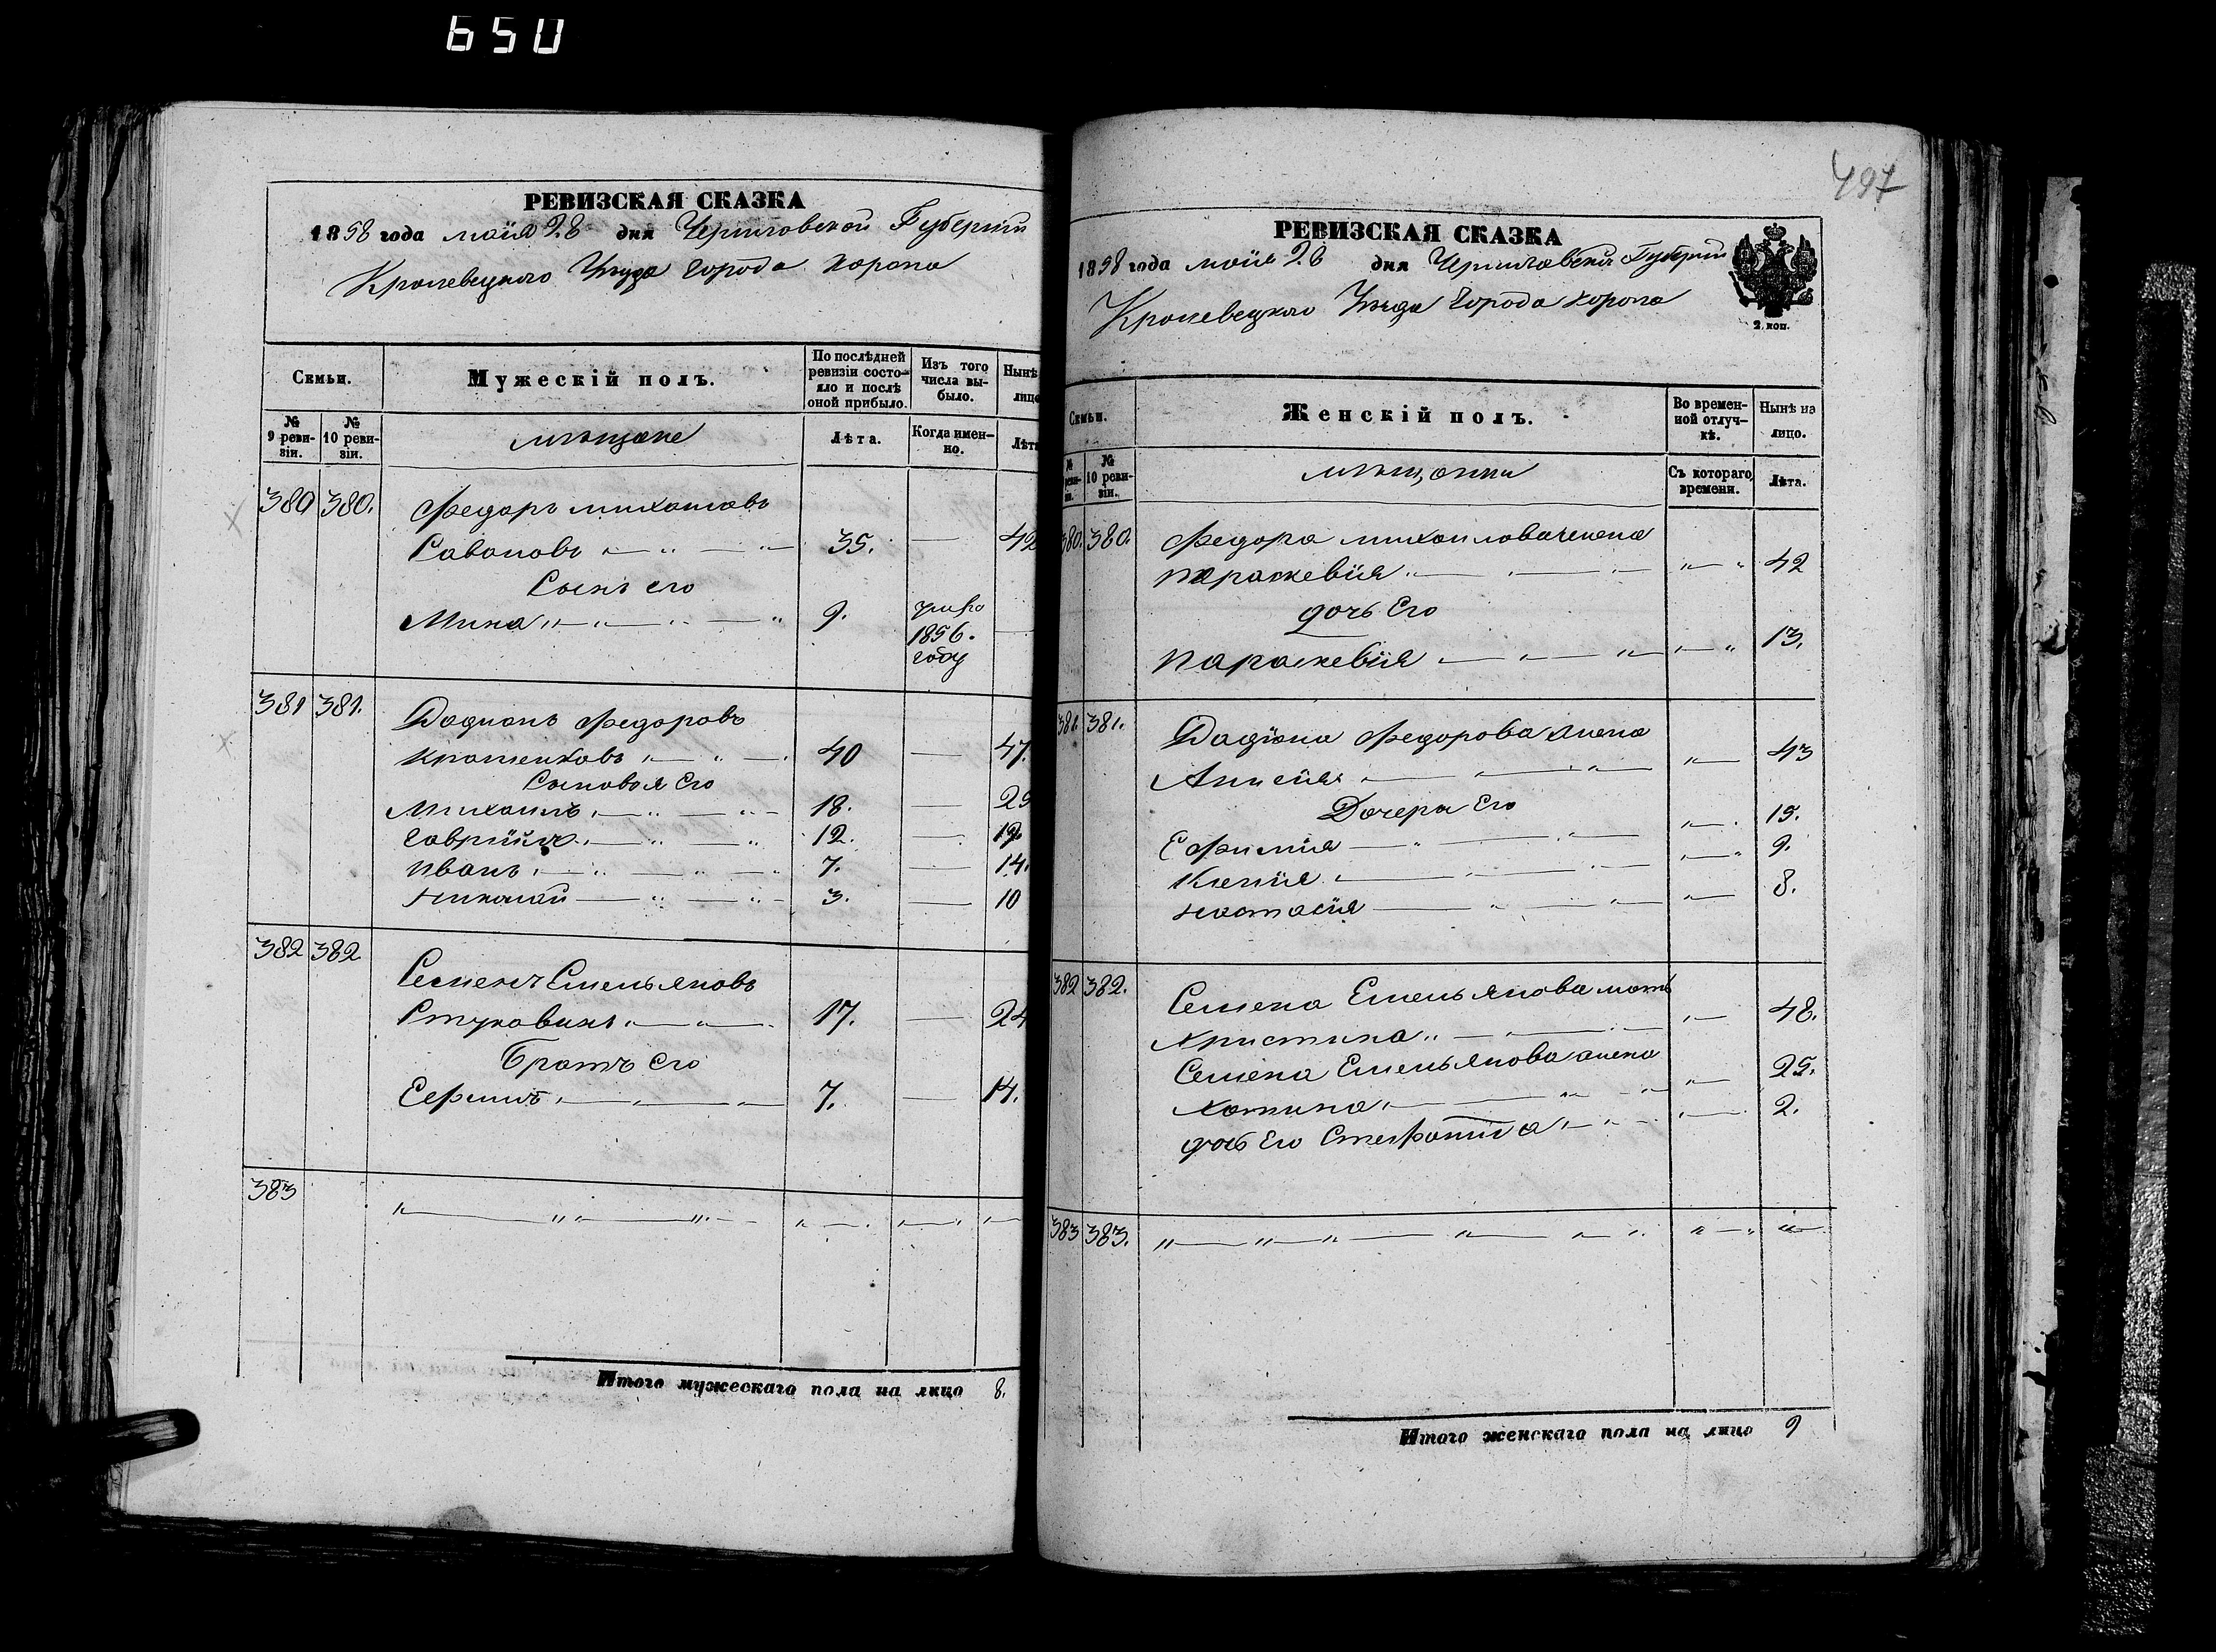 650
РЕВИЗСКАЯ СКАЗКА
1858 года мая 28 дня Черниговской Губерніи
Кролевецкаго Уѣзда Города Коропа
Семьи.
Мужескій полъ.
По послѣдней ревизіи состояло и послѣ оной прибыло.
Изъ того числа выбыло.
Нынѣ
лицо
№ 9 ревизіи.
№ 10 ревизіи.
мѣщане
Лѣта.
Когда именно.
Лѣт
380 380. Федоръ михайловъ
35. 42
Сынъ его
Мина 9. 1856. году
381 381. Федоровъ
40 47.
Сыновья Его
Михаилъ 18. 25
Гавріилъ 12. 19
Иванъ 7. 14.
Николай 3. 10
382 382 Семенъ Емельяновъ
17. 24
Братъ его
Ефимъ 7. 14.
383
Итого мужескаго пола на лицо 8.
497
РЕВИЗСКАЯ СКАЗКА
1858 года мая 28 дня Черниговской Губерніи
Кролевецкаго Уѣзда Города Коропа
2. коп.
Семьи.
Женскій полъ.
Во временной отлучкѣ.
Нынѣ на лицо.
№ 10 ревизіи.
мѣщанки
Съ котораго времени.
Лѣта.
380. 380. Федора михайлова жена
Параскевія 42
дочь Его
Параскевія 13.
381. 381. Федорова жена
43
Дочери Его
Ефимія 15.
Ксенія 9.
Настасія 8.
382 382. Семена Емельянова мать
Христина 48.
Семена Емельянова жена
25.
дочь Его Стефанида 2.
383 383.
Итого женскаго пола на лицо 9